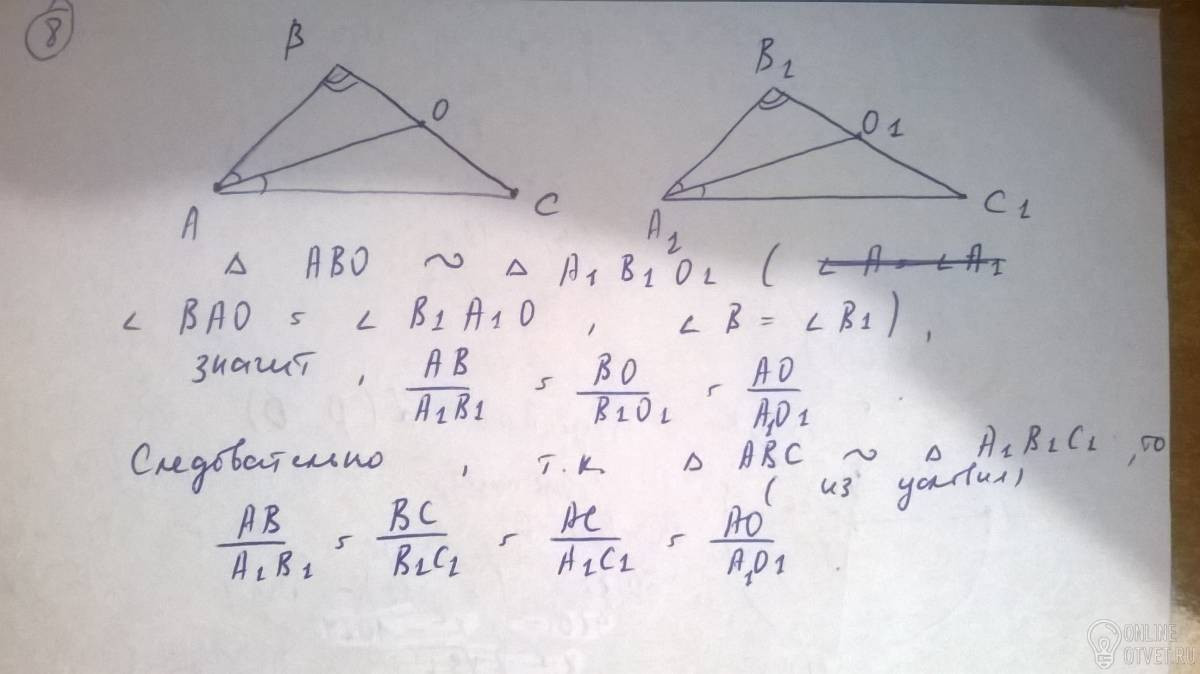 8
B
O
A
C
B1
O1
A1
C1
Δ ABO ~ Δ A1B1O1 ( ∠A = ∠A1
∠ BAO = ∠ B1A1O , ∠ B = ∠ B1 ) ,
значит , AB/A1B1 = BO/B1O1 = AO/A1O1
Следовательно , т.к. Δ ABC ~ Δ A1B1C1 , то
( из условия)
AB/A1B1 = BC/B1C1 = AC/A1C1 = AO/A1O1 .
ONLINE
OTVET.RU